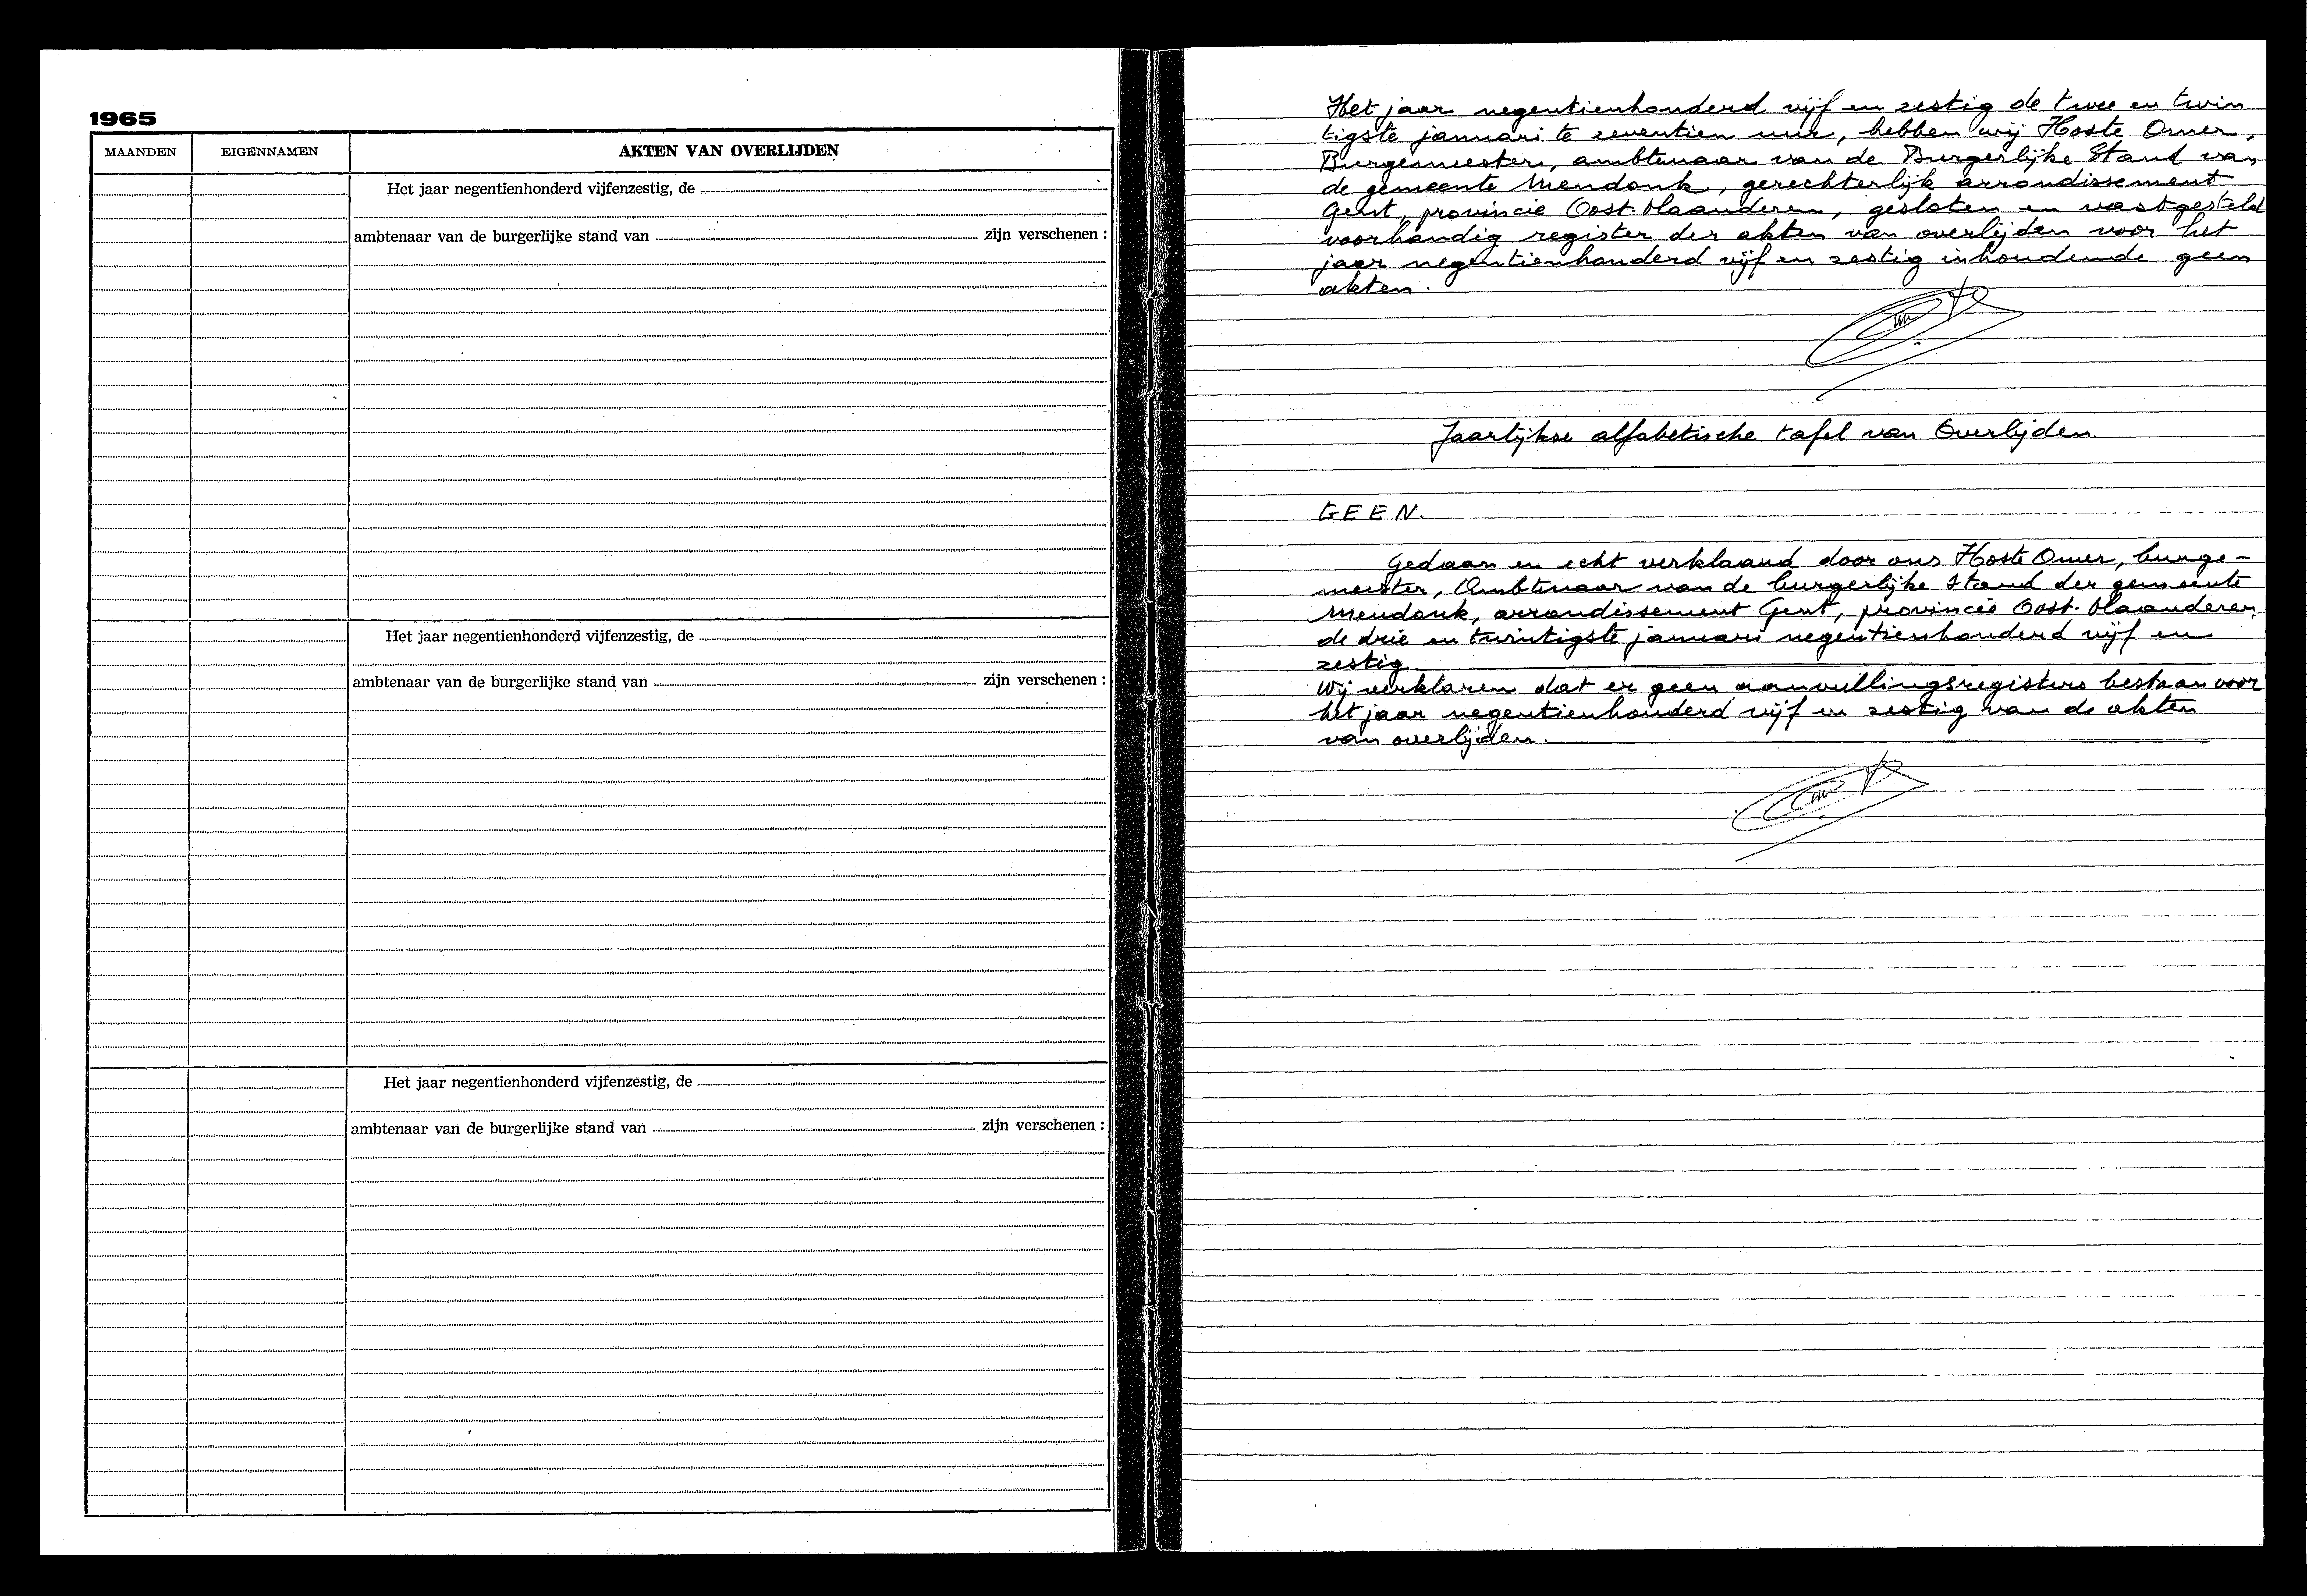 1965
MAANDEN EIGENNAMEN AKTEN VAN OVERLIJDEN
Het jaar negentienhonderd vijfenzestig, de
ambtenaar van de burgerlijke stand van zijn verschenen :
Het jaar negentienhonderd vijfenzestig, de
ambtenaar van de burgerlijke stand van zijn verschenen :
Het jaar negentienhonderd vijfenzestig, de
ambtenaar van de burgerlijke stand van zijn verschenen :
Het jaar negentienhonderd vijf en zestig de twee en twin
tigste januari te zeventien uur, hebben wij Hoste Omer,
Burgemeester, ambtenaar van de Burgerlijke Stand van
de gemeente Mendonk, gerechterlijk arrondissement
Gent, provincie Oost-Vlaanderen, gesloten en vastgesteld
voorhandig register der akten van overlijden voor het
jaar negentienhonderd vijf en zestig inhoudende geen
akten.
Jaarlijkse alfabetische tafel van Overlijden.
GEEN.
Gedaan en echt verklaard door ons Hoste Omer, burge-
meester, Ambtenaar van de burgerlijke stand der gemeente
Mendonk, arrondissement Gent, provincie Oost-Vlaanderen,
de drie en twintigste januari negentienhonderd vijf en
zestig
Wij verklaren dat er geen aanvullingsregisters bestaan voor
het jaar negentienhonderd vijf en zestig van de akten
van overlijden.